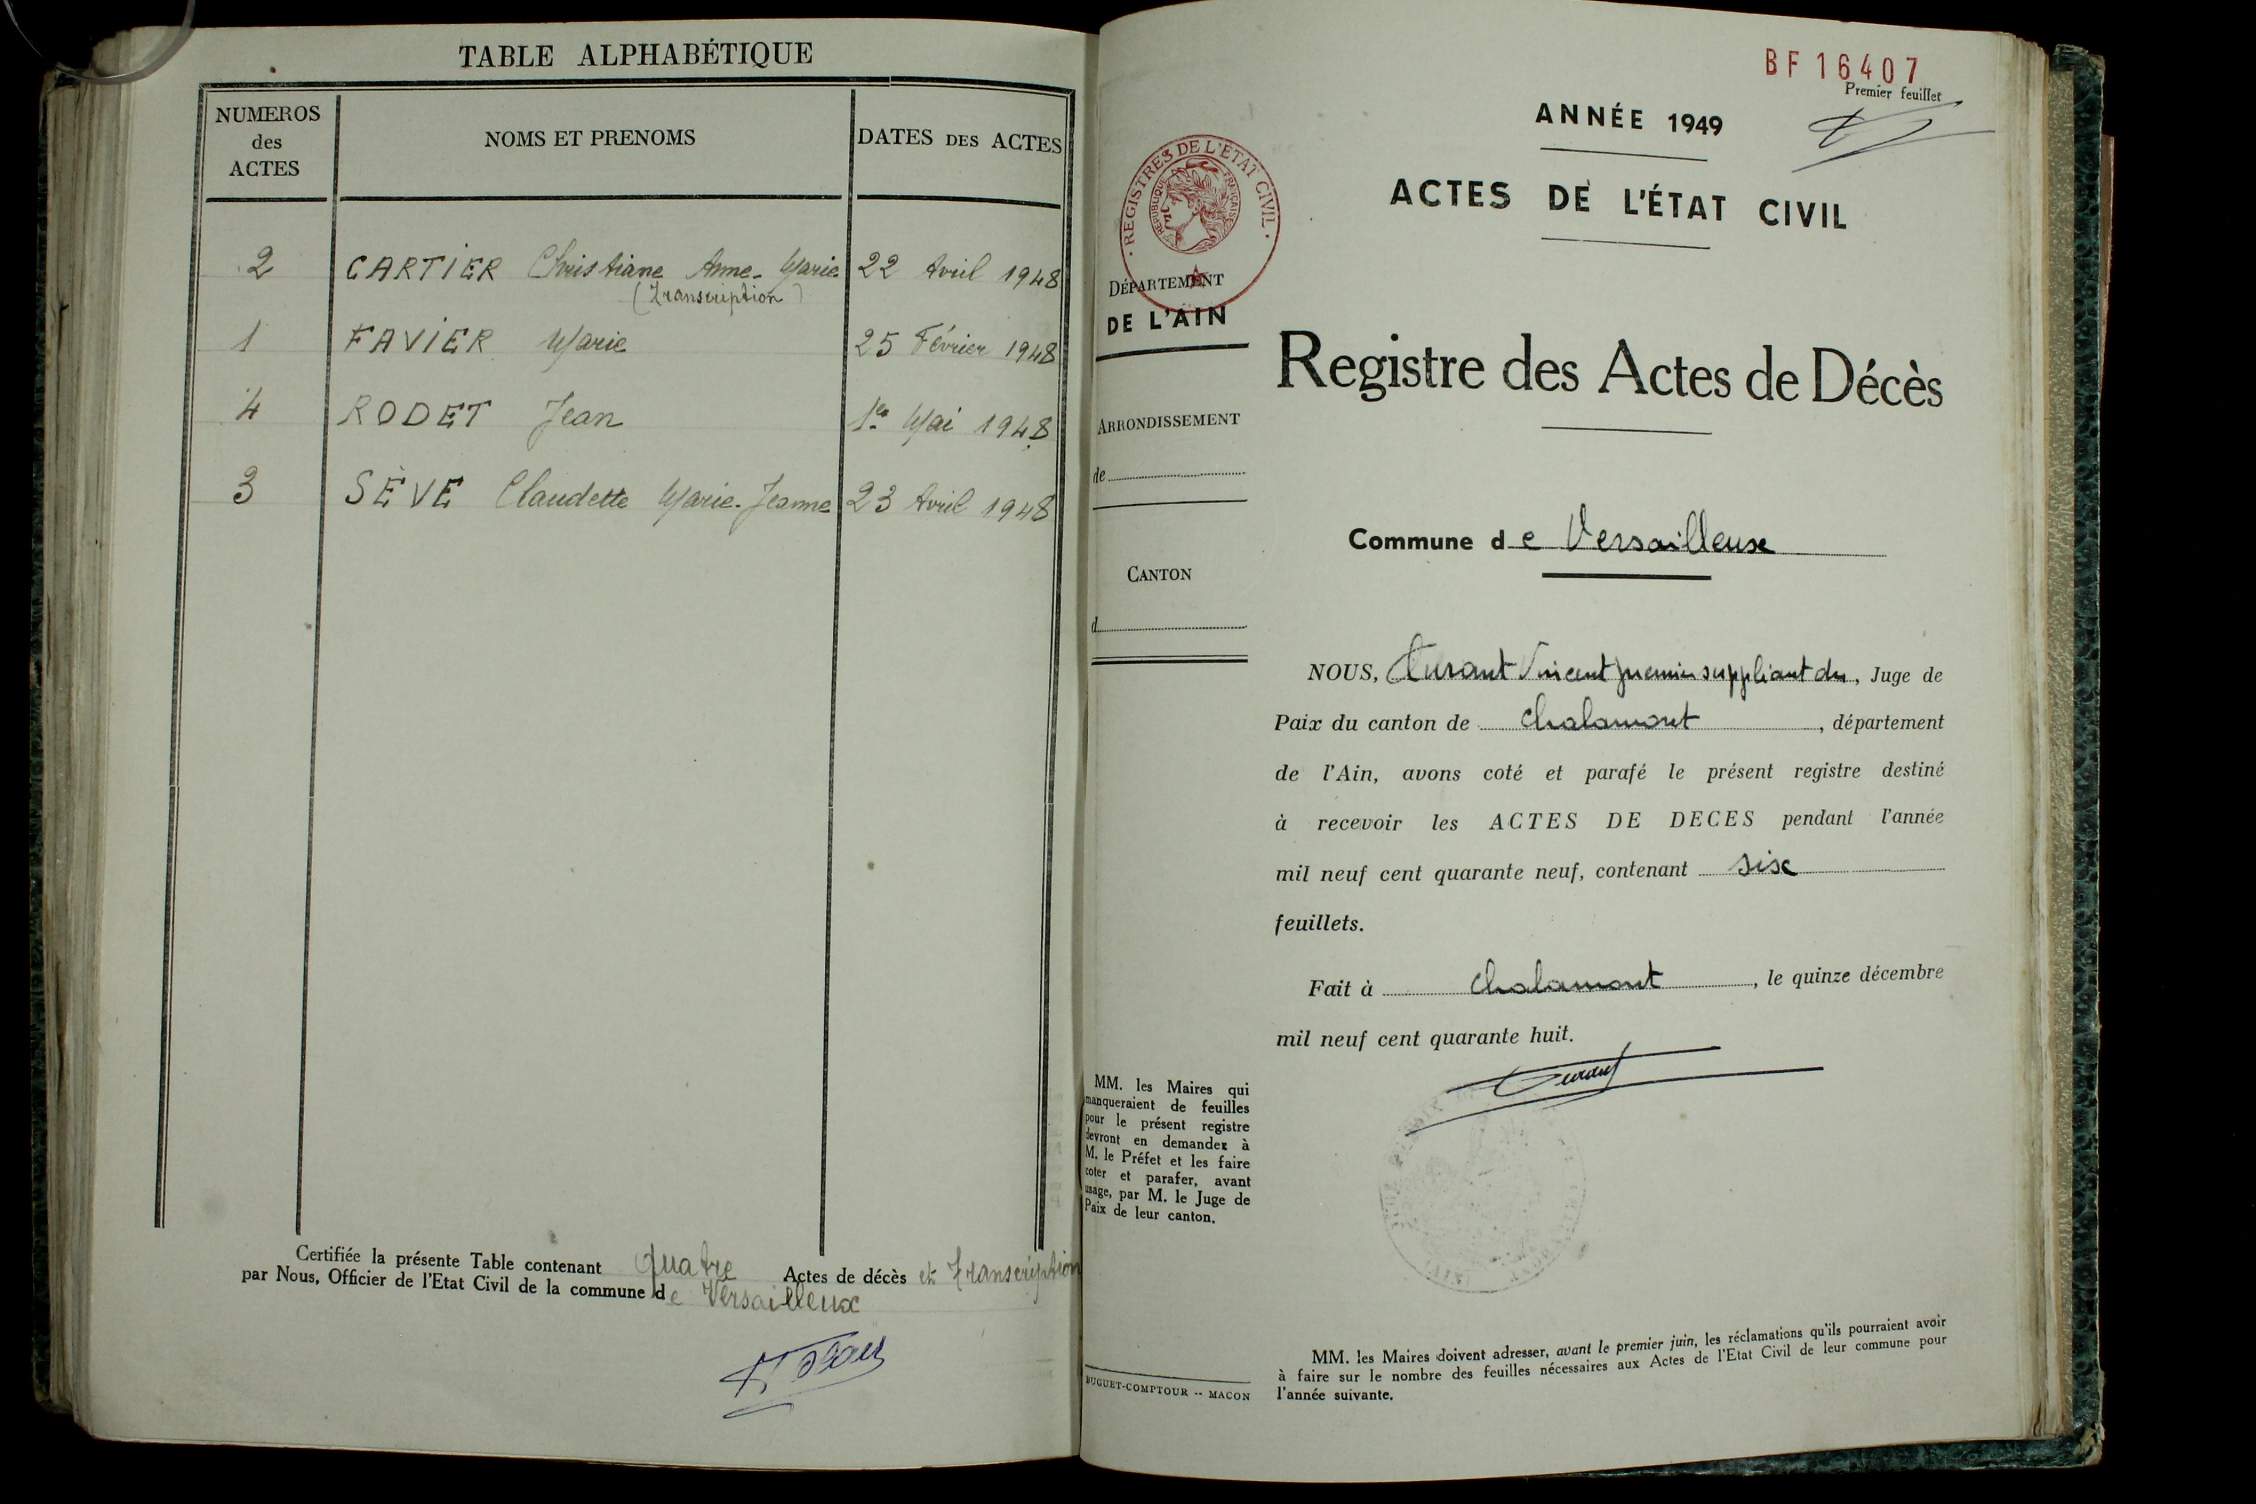 TABLE ALPHABÉTIQUE
NUMEROS des ACTES
NOMS ET PRENOMS
DATES DES ACTES
2 CARTIER Christiane Anne-Marie 22 Avril 1948
(Transcription)
1 FAVIER Marie 25 Février 1948
4 RODET Jean 1er Mai 1948
3 SÈVE Claudette Marie-Jeanne 23 Avril 1948
Certifiée la présente Table contenant quatre Actes de décès et transcription
par Nous, Officier de l'Etat Civil de la commune de Versailleux
BF 16407
Premier feuillet
ANNÉE 1949
ACTES DE L'ÉTAT CIVIL
REGISTRES DE L'ÉTAT CIVIL
RÉPUBLIQUE FRANÇAISE
DÉPARTEMENT
DE L'AIN
Registre des Actes de Décès
ARRONDISSEMENT
de
Commune de Versailleux
CANTON
d
NOUS, Vincent premier suppliant du, Juge de
Paix du canton de Chalamont, département
de l'Ain, avons coté et parafé le présent registre destiné
à recevoir les ACTES DE DECES pendant l'année
mil neuf cent quarante neuf, contenant six
feuillets.
Fait à Chalamont, le quinze décembre
mil neuf cent quarante huit.
MM. les Maires qui
manqueraient de feuilles
pour le présent registre
devront en demander à
M. le Préfet et les faire
coter et parafer, avant
usage, par M. le Juge de
Paix de leur canton.
BUGUET-COMPTOUR -- MACON
MM. les Maires doivent adresser, avant le premier juin, les réclamations qu'ils pourraient avoir
à faire sur le nombre des feuilles nécessaires aux Actes de l'Etat Civil de leur commune pour
l'année suivante.